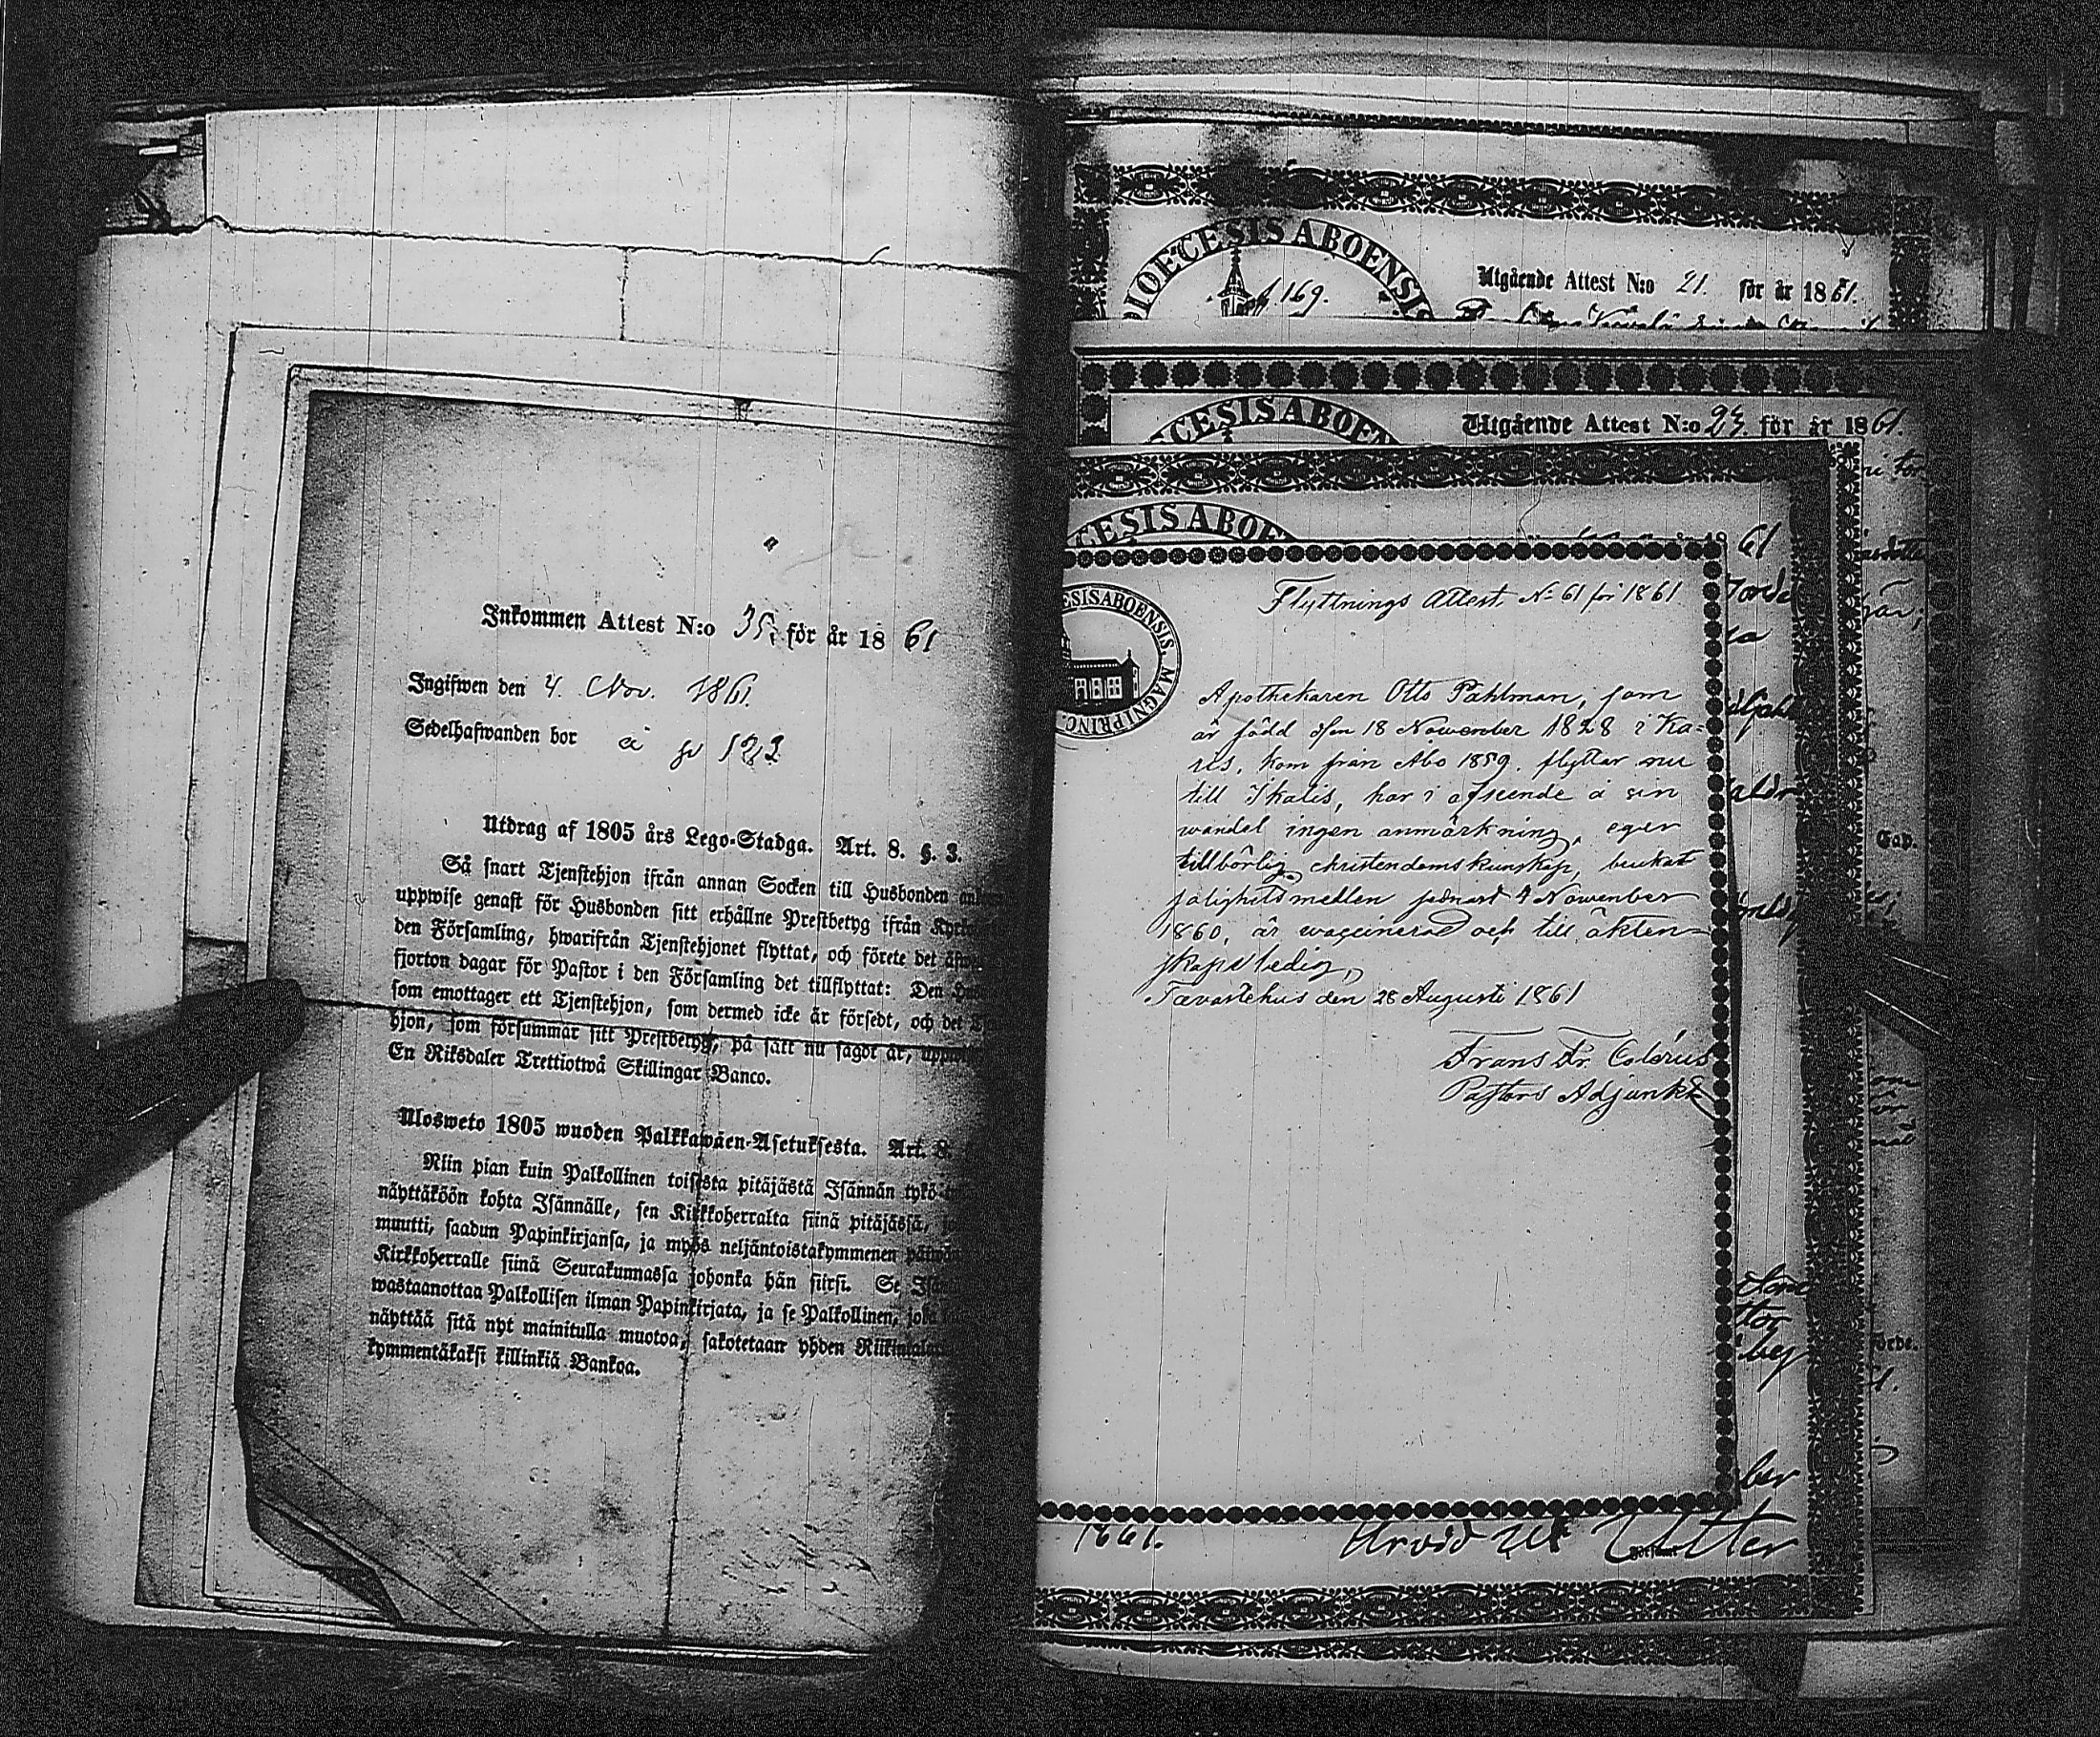 Inkommen Attest N:o 35. för år 1861
Ingifwen den 4. Nov. 1861.
Sedelhafwanden bor å
Utdrag af 1805 års Lego-Stadga. Art. 8. §. 3.
Så snart Tjenstehjon ifrån annan Socken till Husbonden
uppwise genast för Husbonden sitt erhållne Prestbetyg ifrån
den Församling, hwarifrån Tjenstehjonet flyttat, och förete det
fjorton dagar för Pastor i den Församling det tillflyttat: Den
som emottager ett Tjenstehjon, som dermed icke är försedt, och det
hjon, som försummar sitt Prestbetyg, på sätt nu sagdt är,
En Riksdaler Trettiotwå Skillingar Banco.
Ulosweto 1805 wuoden Palkkawäen-Asetuksesta. Art. 8.
Niin pian kuin Palkollinen toisesta pitäjästä Isännän tykö
näyttäköön kohta Isännälle, sen Kirkkoherralta siinä pitäjässä,
muutti, saadun Papinkirjansa, ja myös neljäntoistakymmenen
Kirkkoherralle siinä Seurakunnassa johonka hän siirsi. Se
wastaanottaa Palkollisen ilman Papinkirjata, ja se Palkollinen,
näyttää sitä nyt mainitulla muotoa, sakotetaan yhden
kymmentäkaksi killinkiä Bankoa.
DIOECESIS ABOENSIS
169.
Utgående Attest N:o 21. för år 1861.
CESIS ABOEN
Utgående Attest N:o 23. för år 1861.
CESIS ABOE
61
ESIS ABOENSIS. MAGNI PRINC.
Flyttnings Attest N:o 61 för 1861
Apothekaren Otto Påhlman, som
är född den 18 November 1828 i Ka=
ris, kom från Åbo 1859. flyttar nu
till Ikalis, har i afseende å sin
wandel ingen anmärkning, eger
tillbörlig christendomskunskap, brukat
salighetsmedlen sednast 4 Nowember
1860, är waccinerad och till äkten=
skaps ledig,
Tavastehus den 28 Augusti 1861
Frans Fr.
Pastors Adjunkt
1861. Arvid